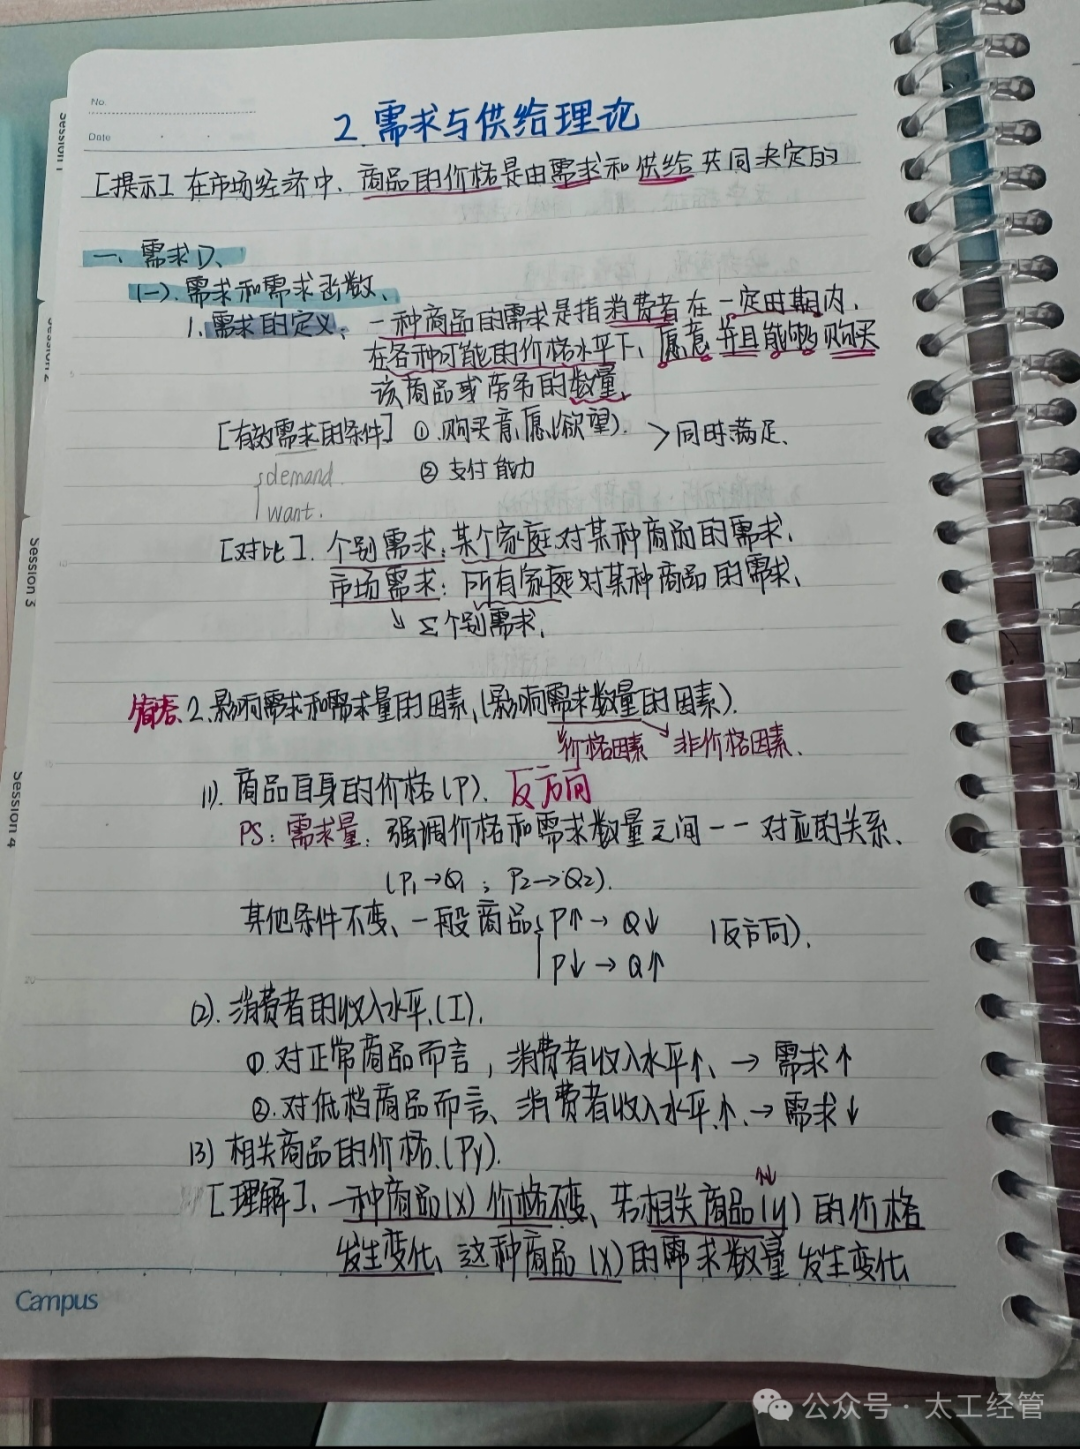 No.
Date
Session 1
Session 2
Session 3
Session 4
2.需求与供给理论
[提示]在市场经济中、商品的价格是由需求和供给共同决定的
一、需求D、
(一).需求和需求函数、
1.需求的定义、一种商品的需求是指消费者在一定时期内、
在各种可能的价格水平下、愿意并且能够购买
该商品或劳务的数量、
[有效需求的条件] ①.购买意愿(欲望). >同时满足、
②支付能力
demand.
want.
[对比].个别需求:某个家庭对某种商品的需求、
市场需求:所有家庭对某种商品的需求、
↘ Σ个别需求、
简答、2.影响需求和需求量的因素、(影响需求数量的因素).
价格因素 非价格因素.
(1).商品自身的价格(P). 反方向
PS:需求量:强调价格和需求数量之间一一对应的关系、
(P₁→Q₁;P₂→Q₂).
其他条件不变、一般商品 P↑→Q↓ (反方向).
P↓→Q↑
(2).消费者的收入水平.(I).
①.对正常商品而言,消费者收入水平↑、→需求↑
②.对低档商品而言、消费者收入水平、↑、→需求↓
(3)相关商品的价格.(Py).
↑↓
[理解]、一种商品(X)价格不变、若相关商品(y)的价格
发生变化、这种商品(X)的需求数量发生变化
Campus
公众号·太工经管